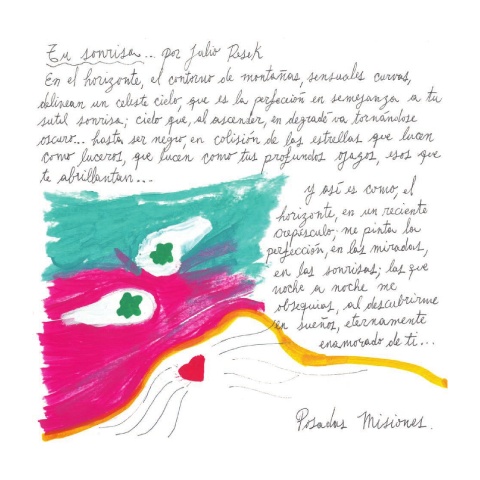 Tu sonrisa... por Julio Pasek
En el horizonte, el contorno de montañas, sensuales curvas,
delinean un celeste cielo, que es la perfección en semejanza a tu
sutil sonrisa; cielo que, al ascender, en degradé va tornándose
oscuro... hasta ser negro, en colisión de las estrellas que lucen
como luceros, que lucen como tus profundos ojazos, esos que
te abrillantan...
Y así es como, el
horizonte, en un reciente
crepúsculo, me pinta la
perfección, en las miradas,
en las sonrisas; las que
noche a noche me
obsequias, al descubrirme
en sueños, eternamente
enamorado de ti...
Posadas Misiones.